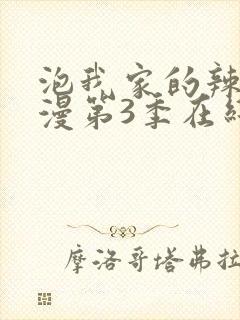 泡我家的辣
漫第3季在线
摩洛哥塔弗拉